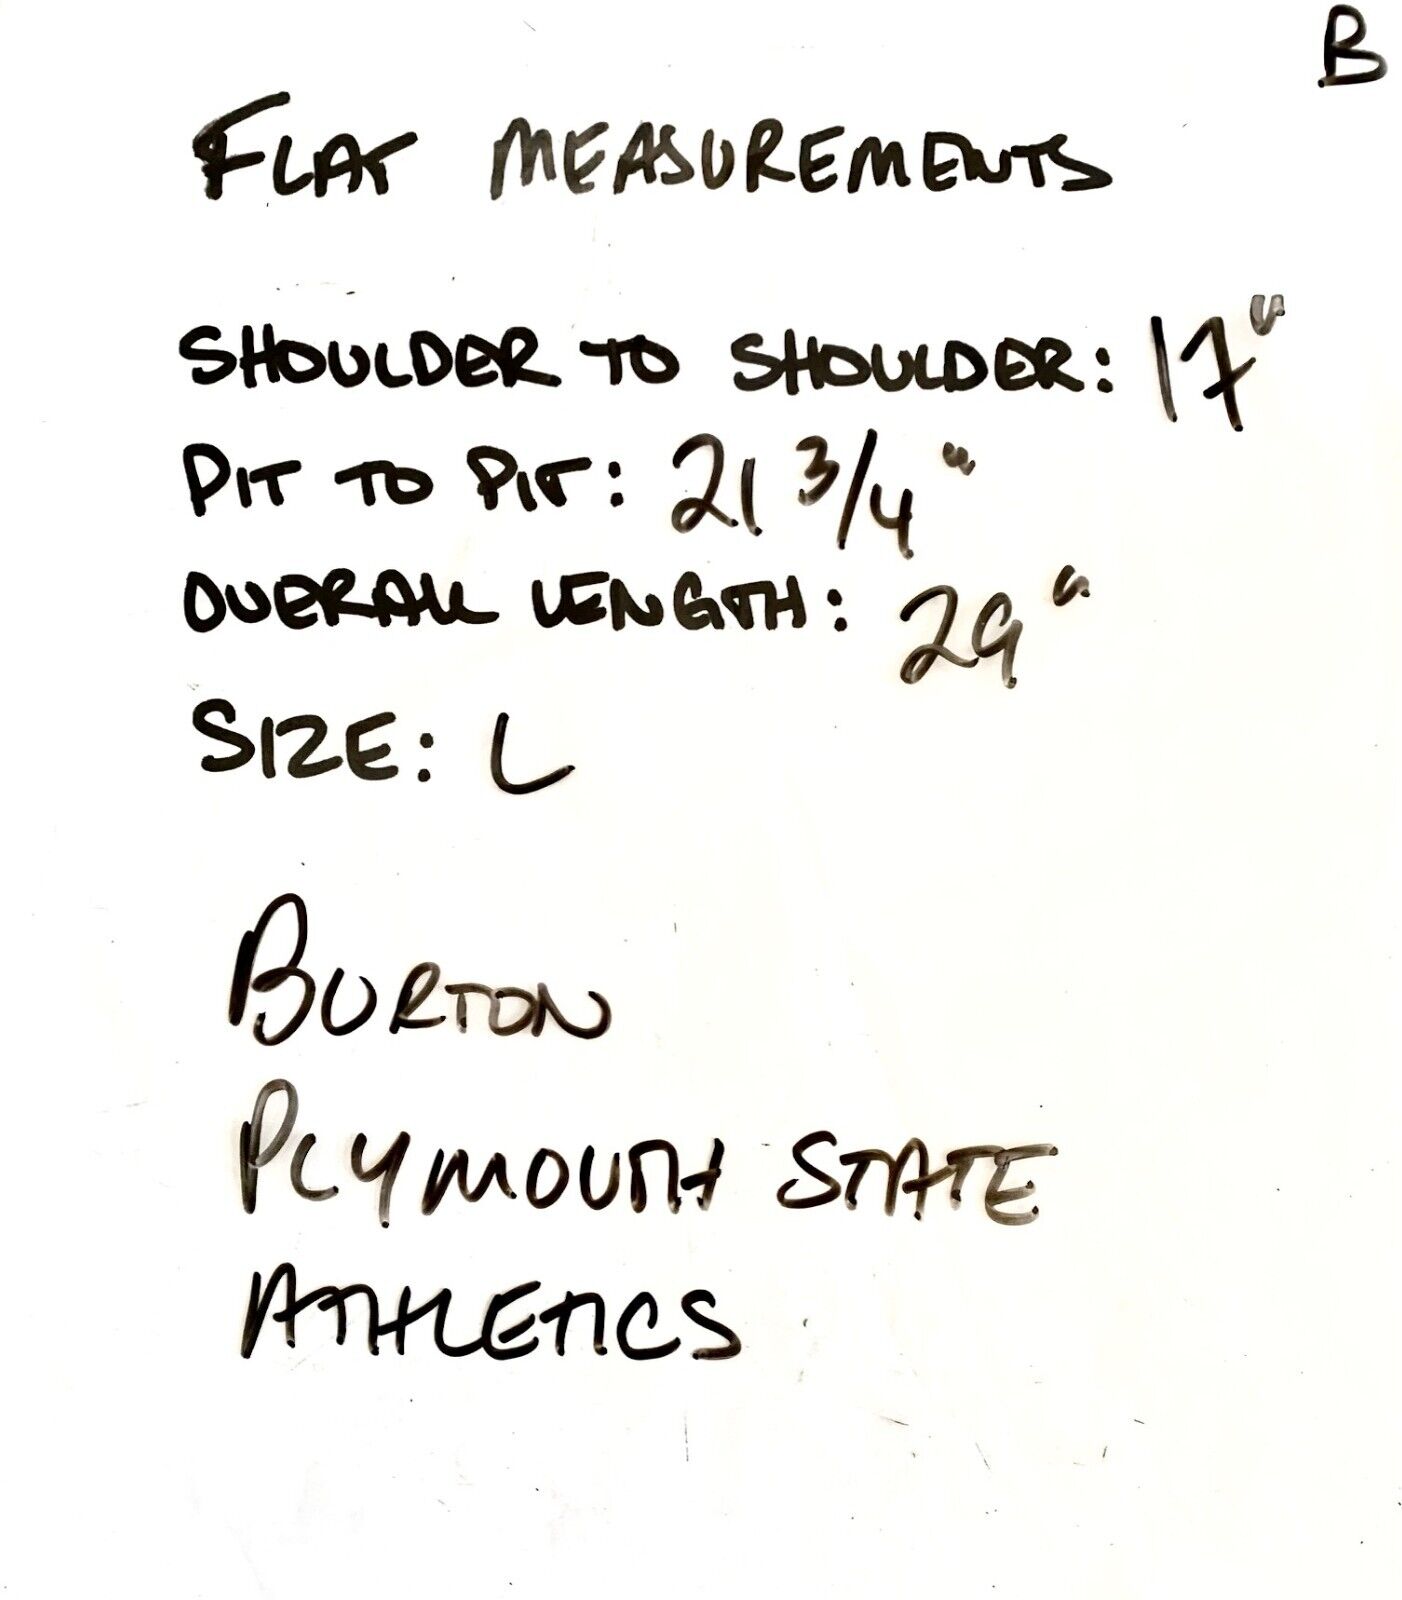 B
FLAT MEASUREMENTS
SHOULDER TO SHOULDER: 17"
PIT TO PIT: 21 3/4"
OVERALL LENGTH: 29"
SIZE: L
BURTON
PLYMOUTH STATE
ATHLETICS